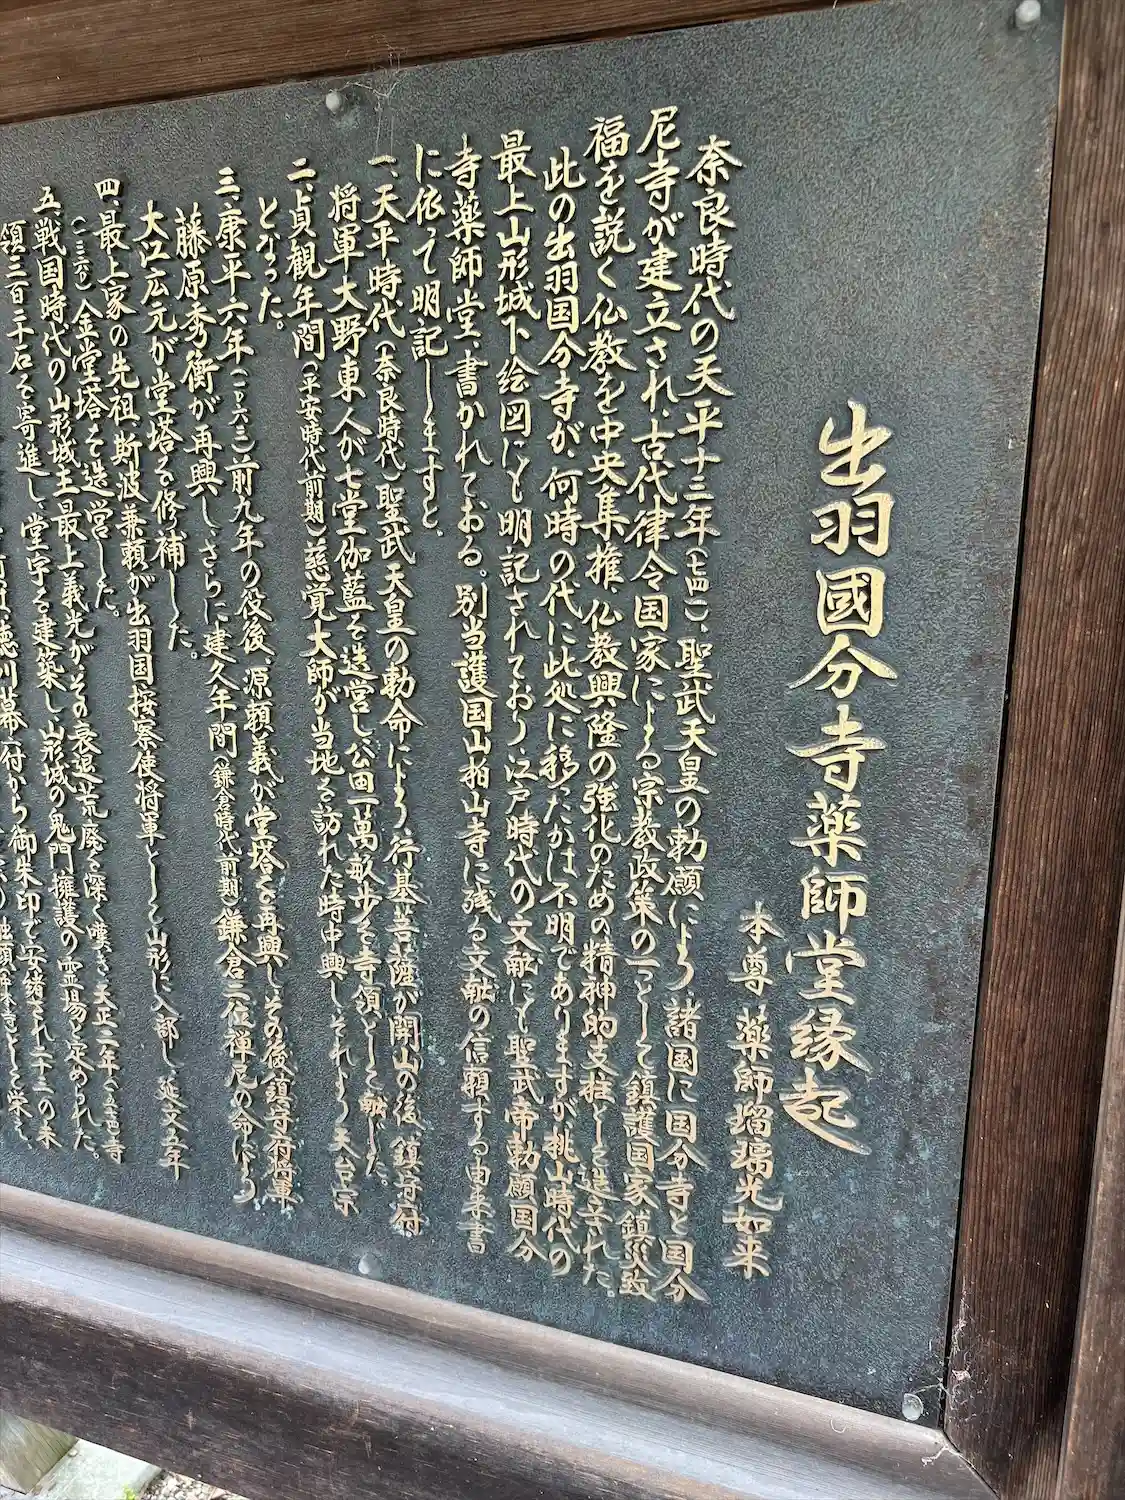 出羽國分寺薬師堂縁起
本尊 薬師瑠璃光如来
奈良時代の天平十三年(七四一)、聖武天皇の勅願により諸国に国分寺と国分
尼寺が建立され、古代律令国家による宗教政策の一として鎮護国家鎮災致
福を説く仏教を中央集権、仏教興隆の強化のための精神的支柱として造立された。
此の出羽国分寺が、何時の代に此処に移ったかは不明でありますが、桃山時代の
最上山形城下絵図にも明記されており、江戸時代の文献にも聖武帝勅願国分
寺薬師堂、書かれておる。別当護国山柏山寺に残る文献の信頼する由来書
に依って明記しますと、
一、天平時代(奈良時代)聖武天皇の勅命により、行基菩薩が開山の後、鎮守府
将軍大野東人が七堂伽藍を造営し公田一萬畝歩を寺領として献じた。
二、貞観年間(平安時代前期)慈覚大師が当地を訪れた時中興し、それより天台宗
となった。
三、康平六年(一〇六三)前九年の役後、源頼義が堂塔を再興し、その後鎮守府将軍
藤原秀衡が再興し、さらに建久年間(鎌倉時代前期)鎌倉二位禅尼の命により
大江広元が堂塔を修補した。
四、最上家の先祖、斯波兼頼が出羽国按察使将軍として山形に入部し延文五年
(一三六〇)金堂塔を造営した。
五、戦国時代の山形城主最上義光がその衰退荒廃を深く嘆き、天正二年(一五七四)寺
領三百二十石を寄進し、堂宇を建築し、山形城の鬼門擁護の霊場と定められた。
徳川幕府から御朱印で安堵され二十二の末